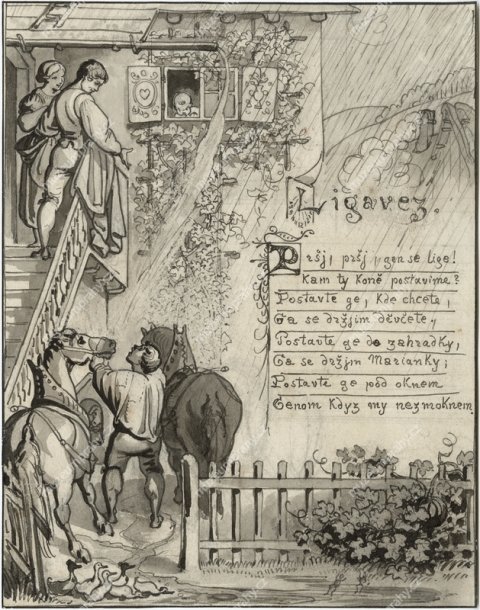 Ligavez.
Pršj, pršj, gen se lige!
Kam ty koně postavíme?
Postavte ge, kde chcete,
Ga se držjm děvčete,
Postavte ge do zahradky,
Ga se držjm Marianky;
Postavte ge pod oknem
Genom kdyz my nezmoknem.